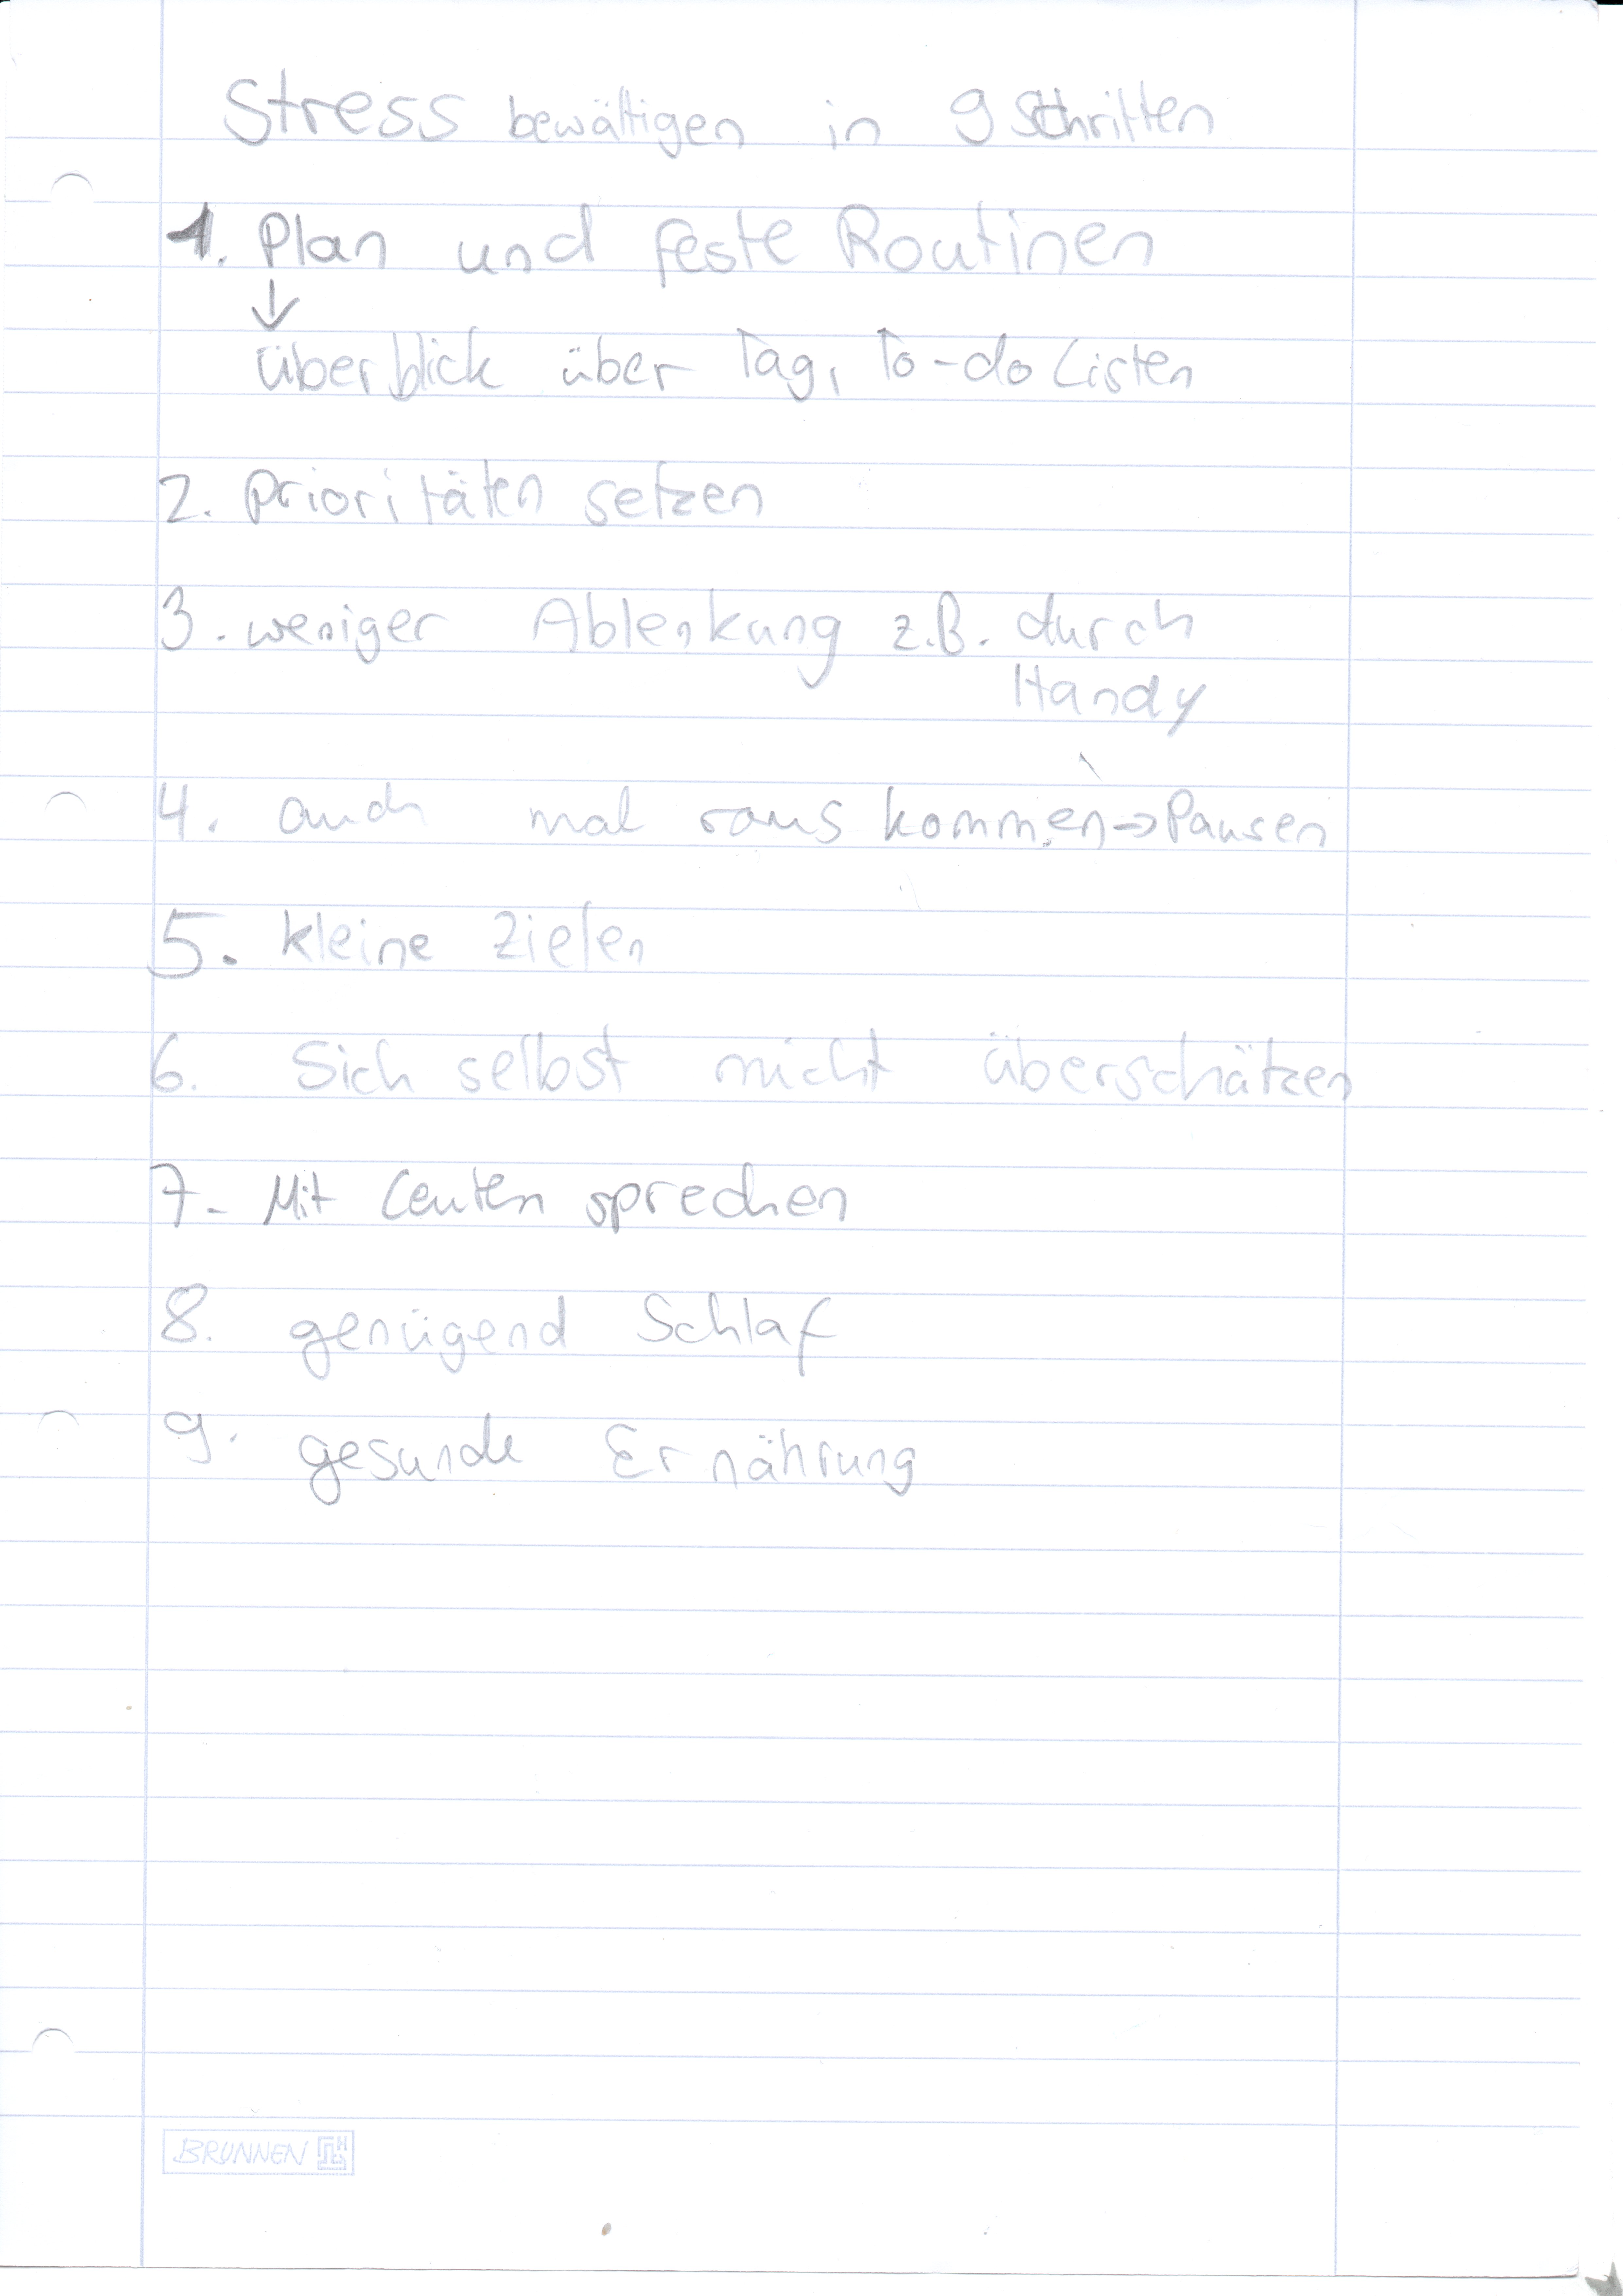 Stress bewältigen in 9 Schritten
1. Plan und feste Routinen
↓
überblick über Tag, To-do Listen
2. Prioritäten setzen
3. weniger Ablenkung z.B. durch
Handy
4. auch mal raus kommen => Pausen
5. kleine Zielen
6. Sich selbst nicht überschätzen
7. Mit Leuten sprechen
8. genügend Schlaf
9. gesunde Ernährung
BRUNNEN